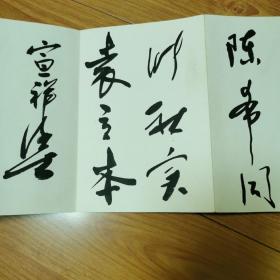 陈希同
秋实
袁立本
宣祥鎏